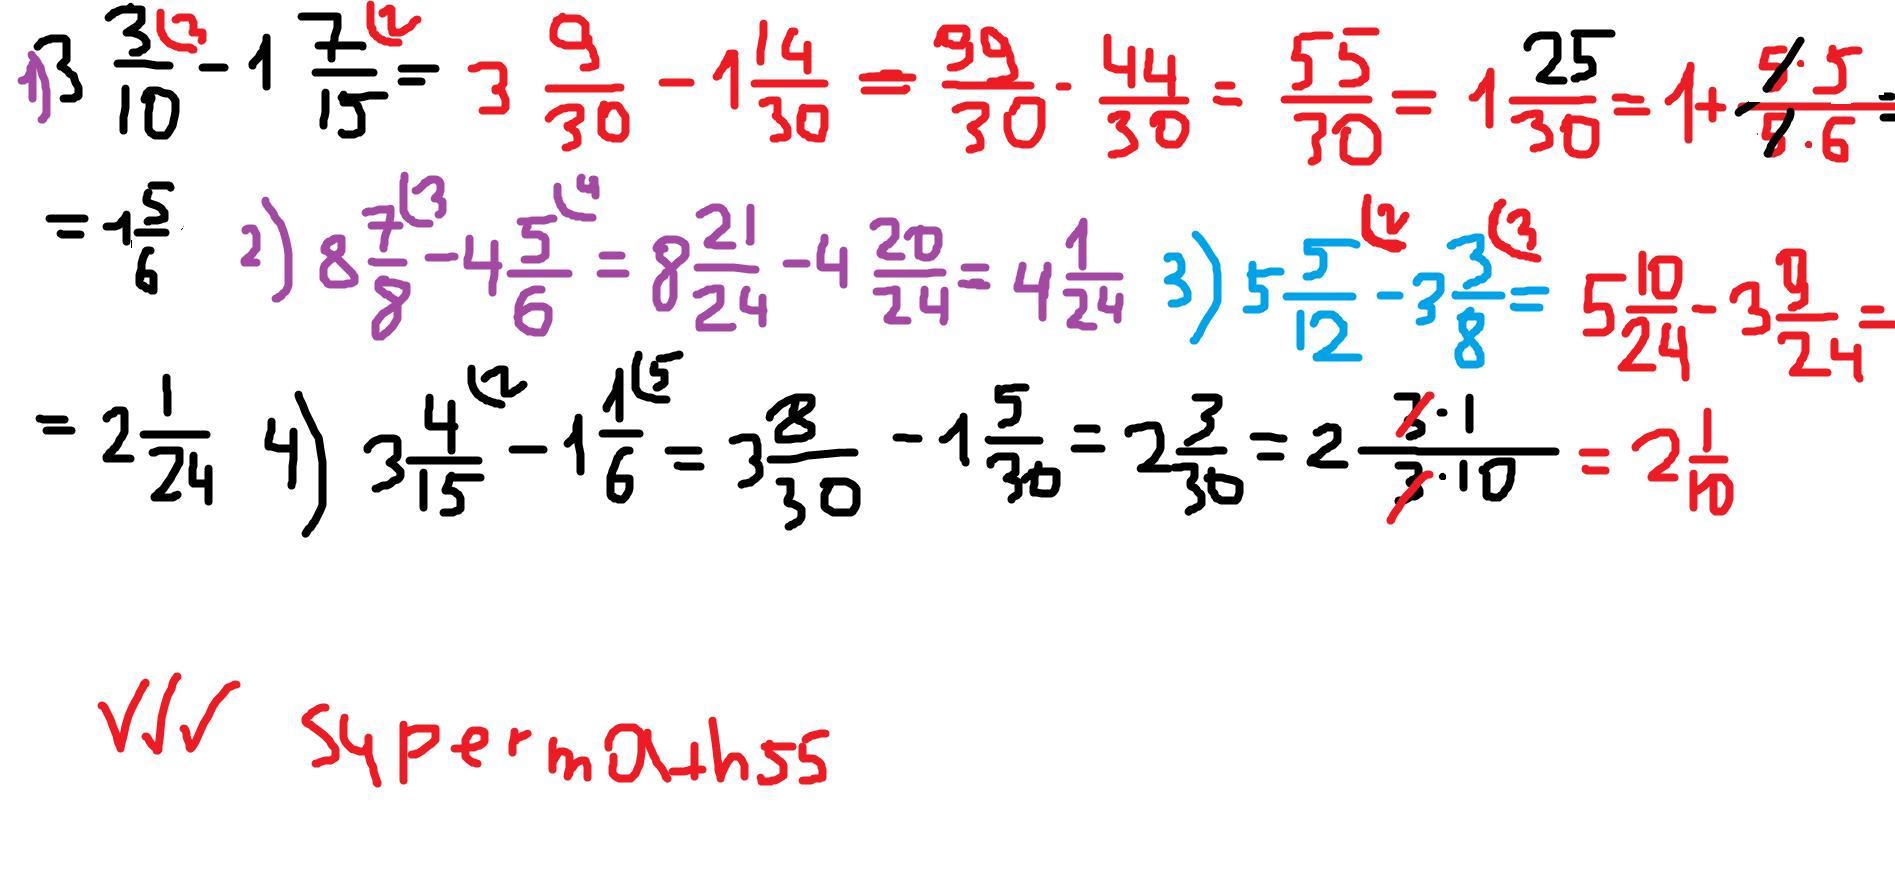 1) 3 3/10 (3 - 1 7/15 (2 = 3 9/30 - 1 14/30 = 99/30 - 44/30 = 55/30 = 1 25/30 = 1+ 5·5/5·6 =
= 1 5/6 2) 8 7/8 (3 - 4 5/6 (4 = 8 21/24 - 4 20/24 = 4 1/24 3) 5 5/12 (2 - 3 3/8 (3 = 5 10/24 - 3 9/24 =
= 2 1/24 4) 3 4/15 (2 - 1 1/6 (5 = 3 8/30 - 1 5/30 = 2 3/30 = 2 3·1/3·10 = 2 1/10
√√√ Sypermath55